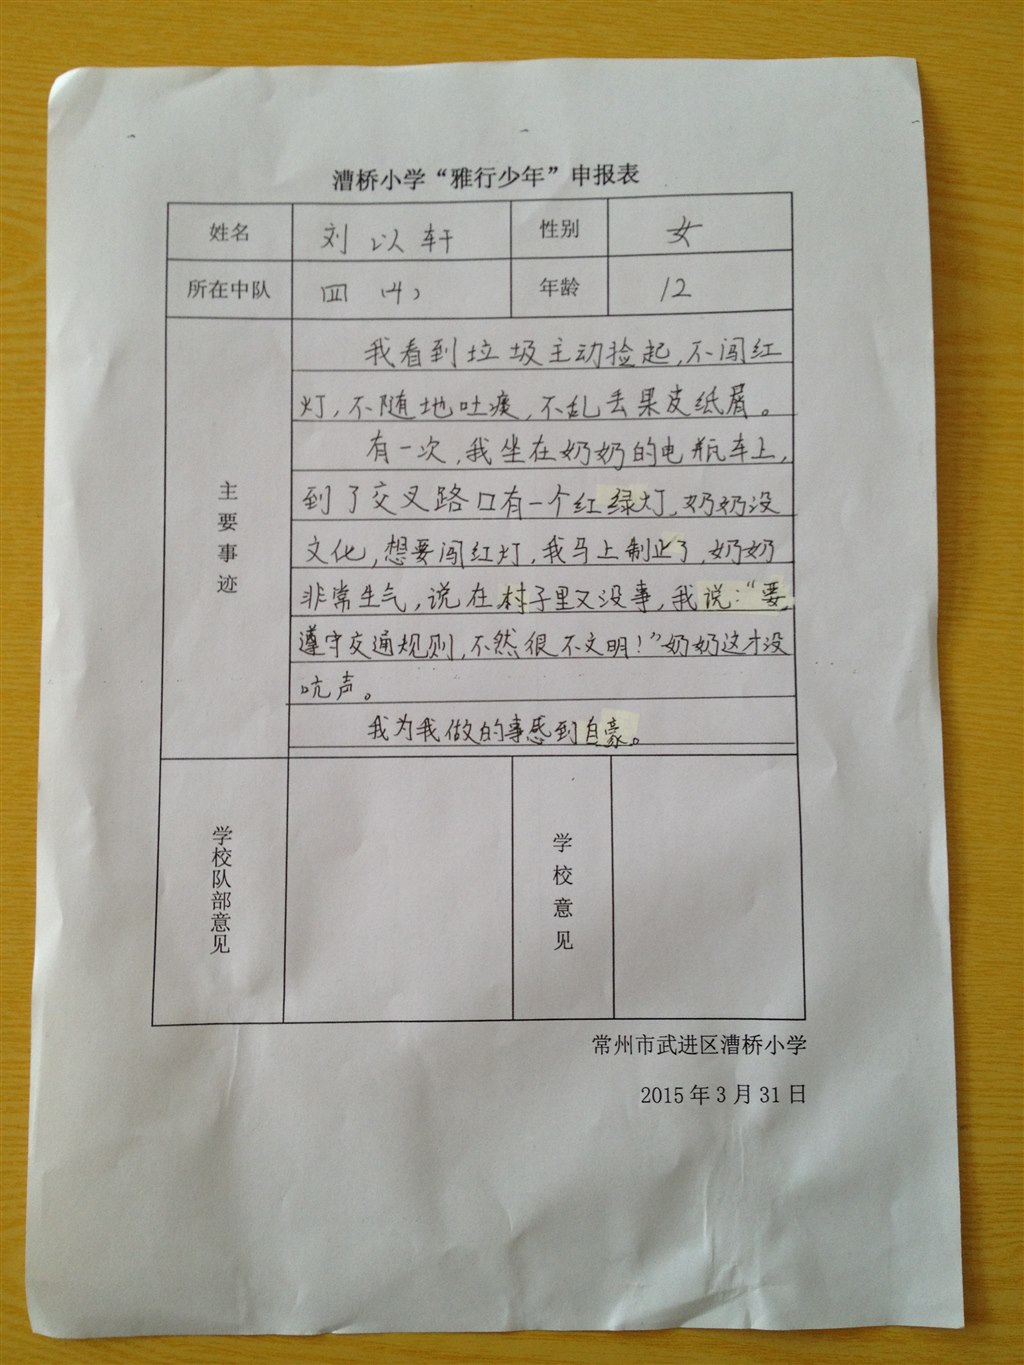 漕桥小学“雅行少年”申报表
姓名 刘以轩 性别 女
所在中队 四(4) 年龄 12
主要事迹
我看到垃圾主动捡起,不闯红
灯,不随地吐痰,不乱丢果皮纸屑。
有一次,我坐在奶奶的电瓶车上,
到了交叉路口有一个红绿灯,奶奶没
文化,想要闯红灯,我马上制止了,奶奶
非常生气,说在村子里又没事,我说:“要
遵守交通规则,不然很不文明!”奶奶这才没
吭声。
我为我做的事感到自豪。
学校队部意见 学校意见
常州市武进区漕桥小学
2015年3月31日